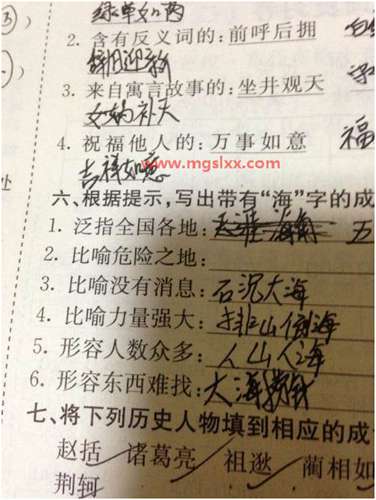 绿草如茵
2. 含有反义词的：前呼后拥
辞旧迎新
3. 来自寓言故事的：坐井观天
女娲补天
4. 祝福他人的：万事如意 福
吉祥如意
www.mgslxx.com
六、根据提示，写出带有“海”字的成
1. 泛指全国各地：天涯海角 五
2. 比喻危险之地：
3. 比喻没有消息：石沉大海
4. 比喻力量强大：排山倒海
5. 形容人数众多：人山人海
6. 形容东西难找：大海捞针
七、将下列历史人物填到相应的成
赵括 诸葛亮 祖逖 蔺相如
荆轲